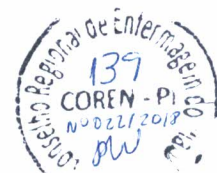 Conselho Regional de Enfermagem do
139
COREN - PI
Nº 022/2018